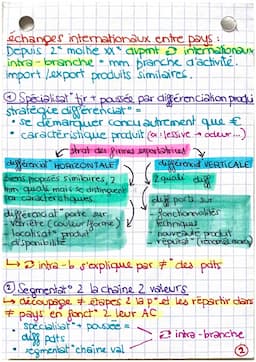 échanges internationaux entre pays :
Depuis 2e moitié XXe dvpmt ⇄ internationaux
intra-branche = mm branche d'activité.
import/export produits similaires.
① Spécialisat° + poussée par différenciation produi
stratégie différenciat° =
• se démarquer concu autrement que €
• caractéristique produit (a: lessive → odeur...)
strat des firmes exportatrices
différenciat° HORIZONTALE
différenciat° VERTICALE
biens proposés similaires,
mm quali mais se distinguent
par caractéristiques.
différenciat° porte sur
- variété (couleur/forme)
- localisat° produit
- disponibilité
≠ quali
diff porte sur
- fonctionnalités
- techniques
- nouveauté produit
↳ ⇄ intra-b s'explique par ≠° des pdts
② Segmentat° 2 la chaîne 2 valeurs
↳ découpage ≠ étapes 2 la p° et les répartir dans
≠ pays en fonct° 2 leur AC
• spécialisat° + poussée =
diff pdts
• segmentat° chaîne val
⇄ intra-branche
②